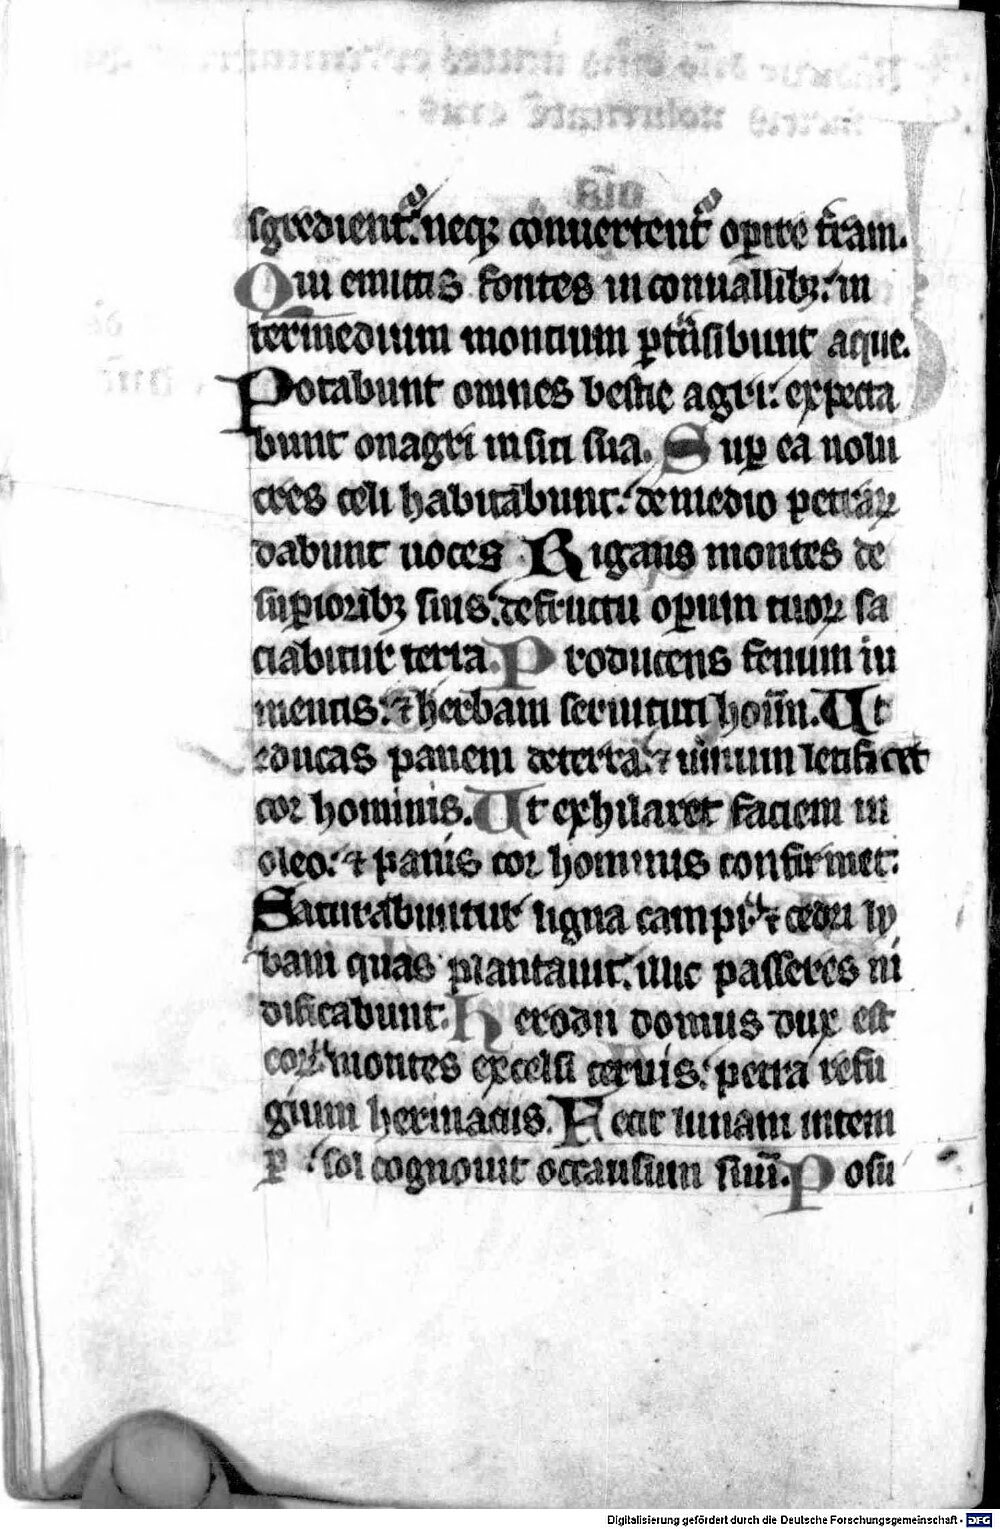 sgredient᷑: neqꝫ conuertent᷑ oꝑire t̄ram.
Qui emittis fontes in conuallibꝫ: in
termedium montium ꝑtͣnsibunt aque.
Potabunt omnes bestie agri: expecta
bunt onagri in siti sua. Suꝑ ea uolu
cres celi habitabunt: de medio petraꝝ
dabunt uoces Rigans montes de
suꝑioribꝫ suis: de fructu oꝑum tuoꝝ sa
ciabitur terra. Producens fenum iu
mentis: ⁊ herbam seruituti homīn. Ut
educas panem de terra: ⁊ uinum letificet
cor hominis. Ut exhilaret faciem in
oleo: ⁊ panis cor hominis confirmet:
Saturabuntur ligna campi: ⁊ cedri ly
bani quas plantauit: illic passeres ni
dificabunt. Herodii domus dux est
eoꝝ: montes excelsi ceruis: petra refu
gium herinaciis. Fecit lunam in tem
ꝑ: sol cognouit occasum suū. Posu
Digitalisierung gefördert durch die Deutsche Forschungsgemeinschaft - DFG